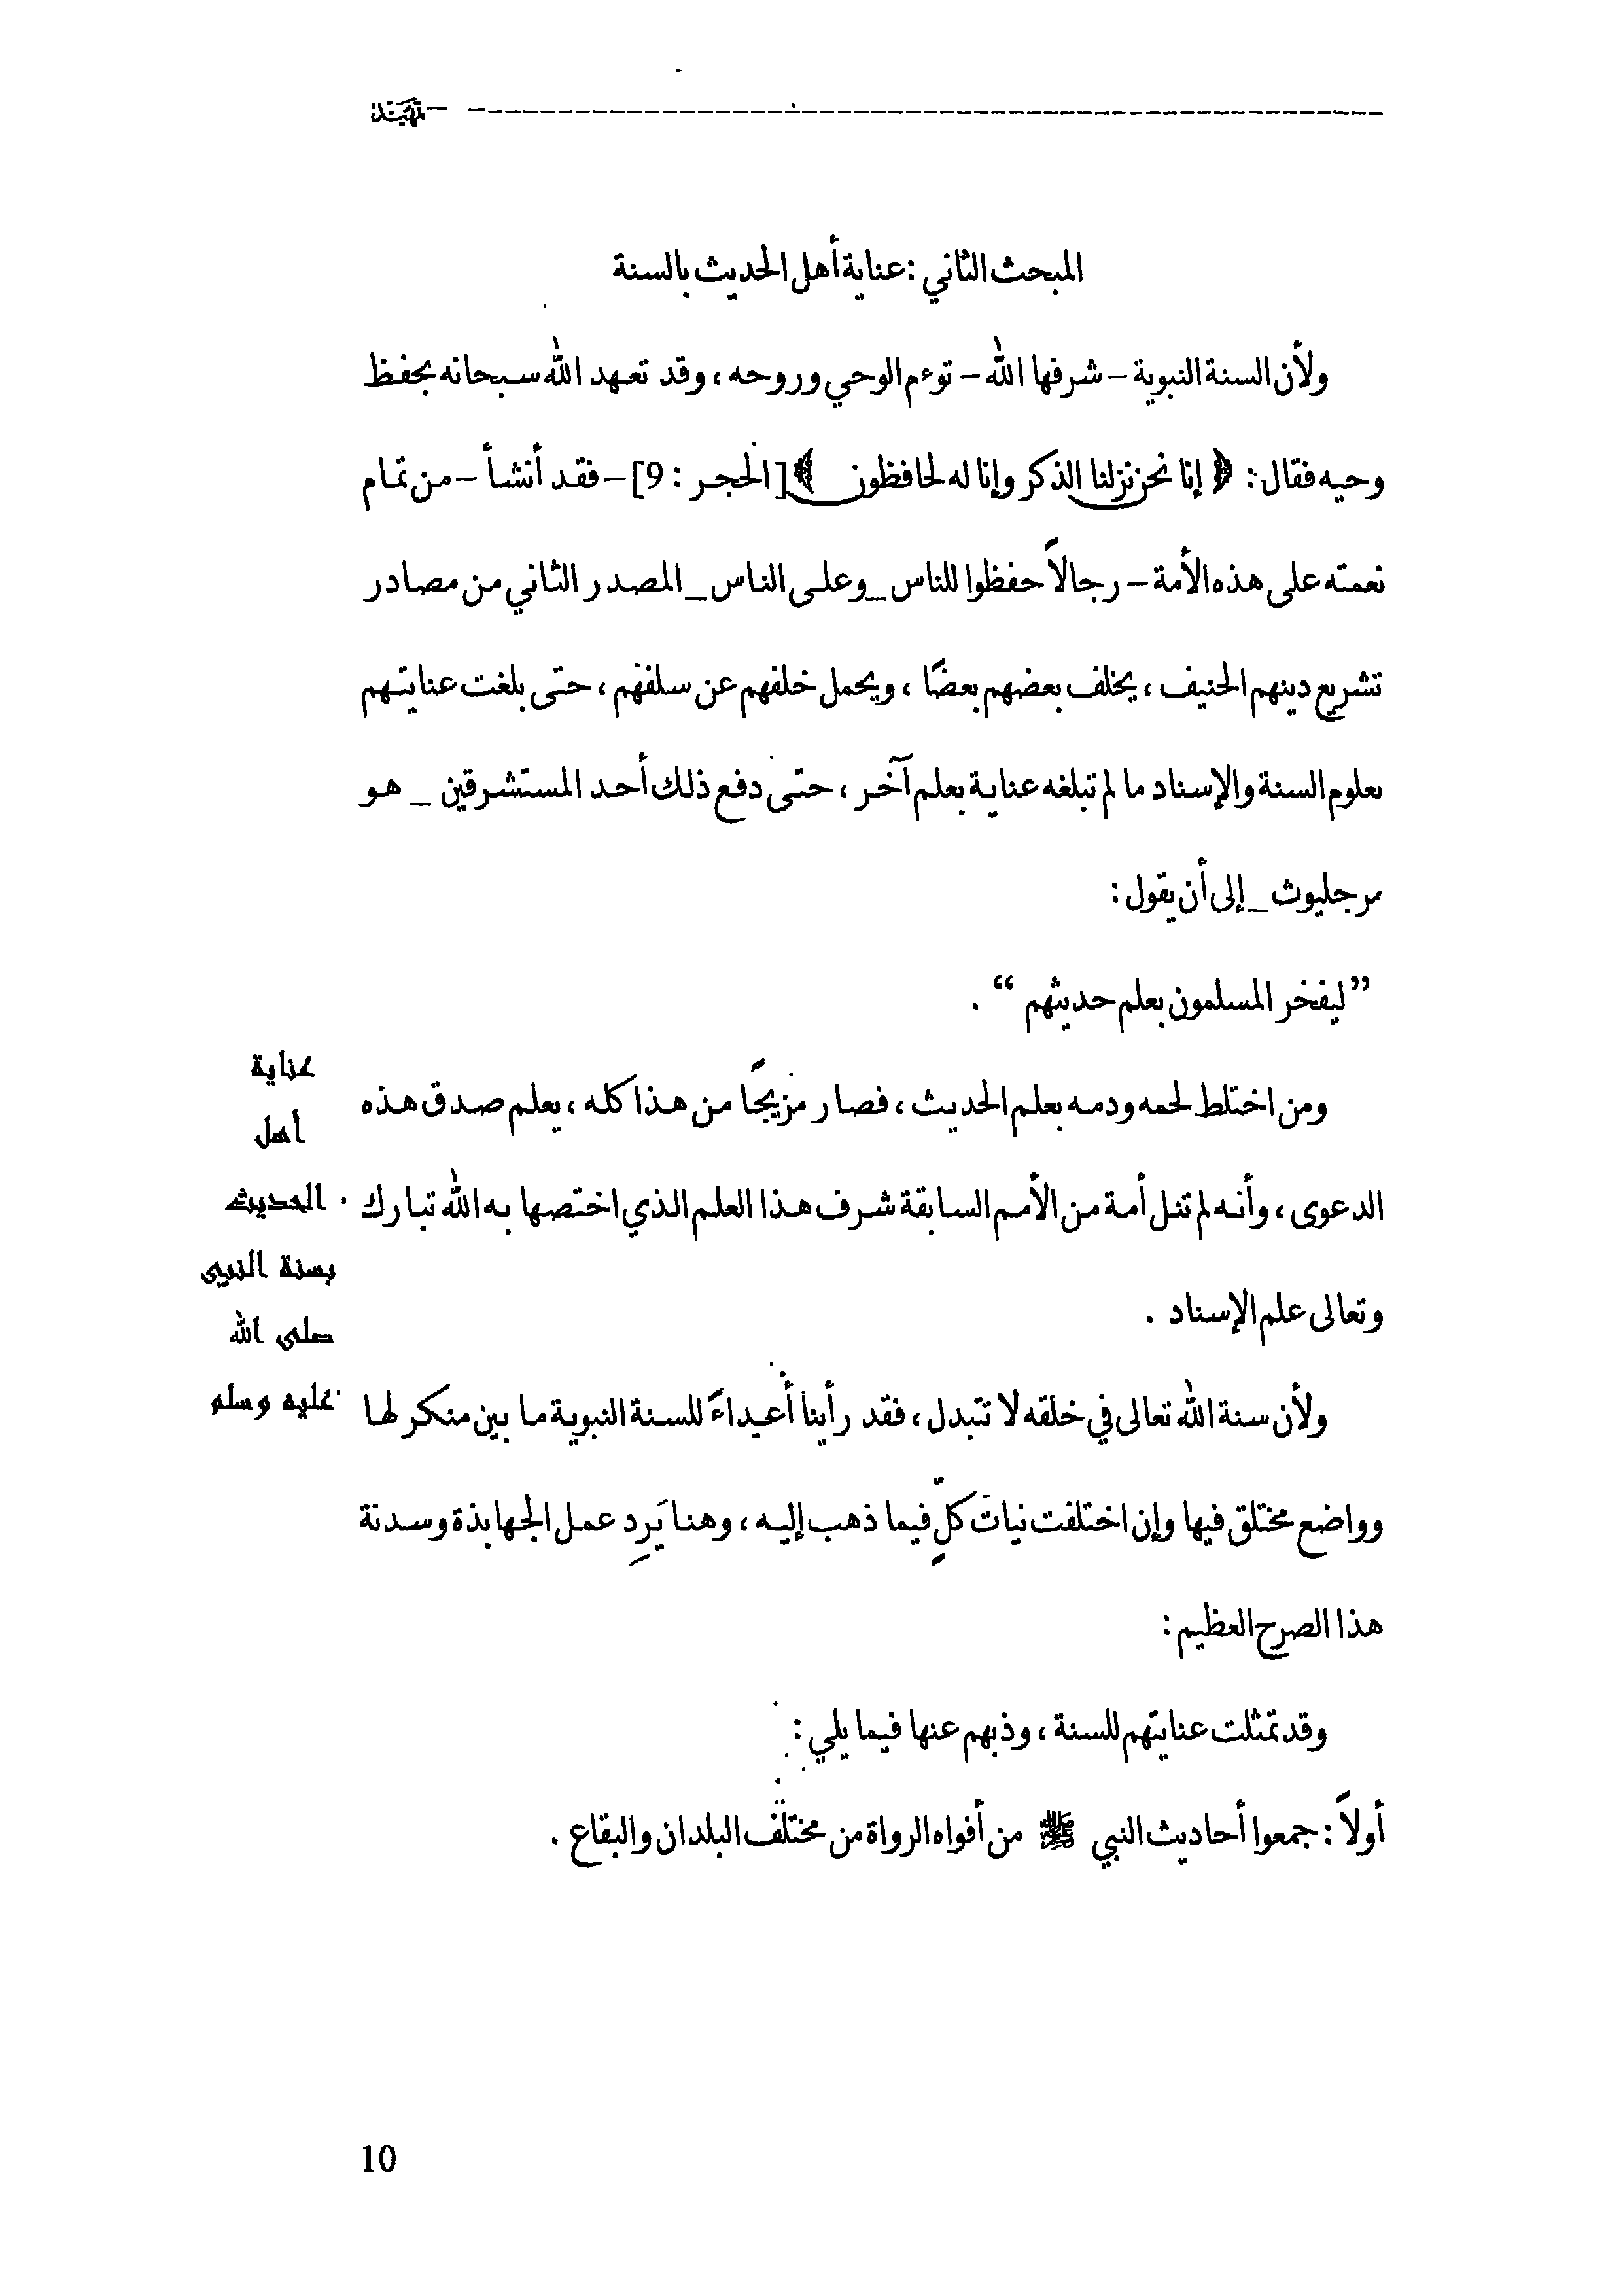 تمهيد
المبحث الثاني : عناية أهل الحديث بالسنة
ولأن السنة النبوية – شرفها الله – توءم الوحي وروحه ، وقد تعهد الله سبحانه بحفظ
وحيه فقال : ﴿ إنا نحن نزلنا الذكر وإنا له لحافظون ﴾ [ الحجر : 9] – فقد أنشأ – من تمام
نعمته على هذه الأمة – رجالاً حفظوا للناس _ وعلى الناس _ المصدر الثاني من مصادر
تشريع دينهم الحنيف ، يخلف بعضهم بعضًا ، ويحمل خلفهم عن سلفهم ، حتى بلغت عنايتهم
بعلوم السنة والإسناد ما لم تبلغه عناية بعلم آخر ، حتى دفع ذلك أحد المستشرقين _ هو
مرجليوث _ إلى أن يقول :
” ليفخر المسلمون بعلم حديثهم “ .
ومن اختلط لحمه ودمه بعلم الحديث ، فصار مزيجًا من هذا كله ، يعلم صدق هذه
الدعوى ، وأنه لم تنل أمة من الأمم السابقة شرف هذا العلم الذي اختصها به الله تبارك
وتعالى علم الإسناد .
ولأن سنة الله تعالى في خلقه لا تتبدل ، فقد رأينا أعداءً للسنة النبوية ما بين منكر لها
وواضع مختلق فيها وإن اختلفت نيات كلٍّ فيما ذهب إليه ، وهنا يَرِد عمل الجهابذة وسدنة
هذا الصرح العظيم :
وقد تمثلت عنايتهم للسنة ، وذبهم عنها فيما يلي :
أولاً : جمعوا أحاديث النبي ﷺ من أفواه الرواة من مختلف البلدان والبقاع .
عناية
أهل
الحديث
بسنة النبي
صلى الله
عليه وسلم
10